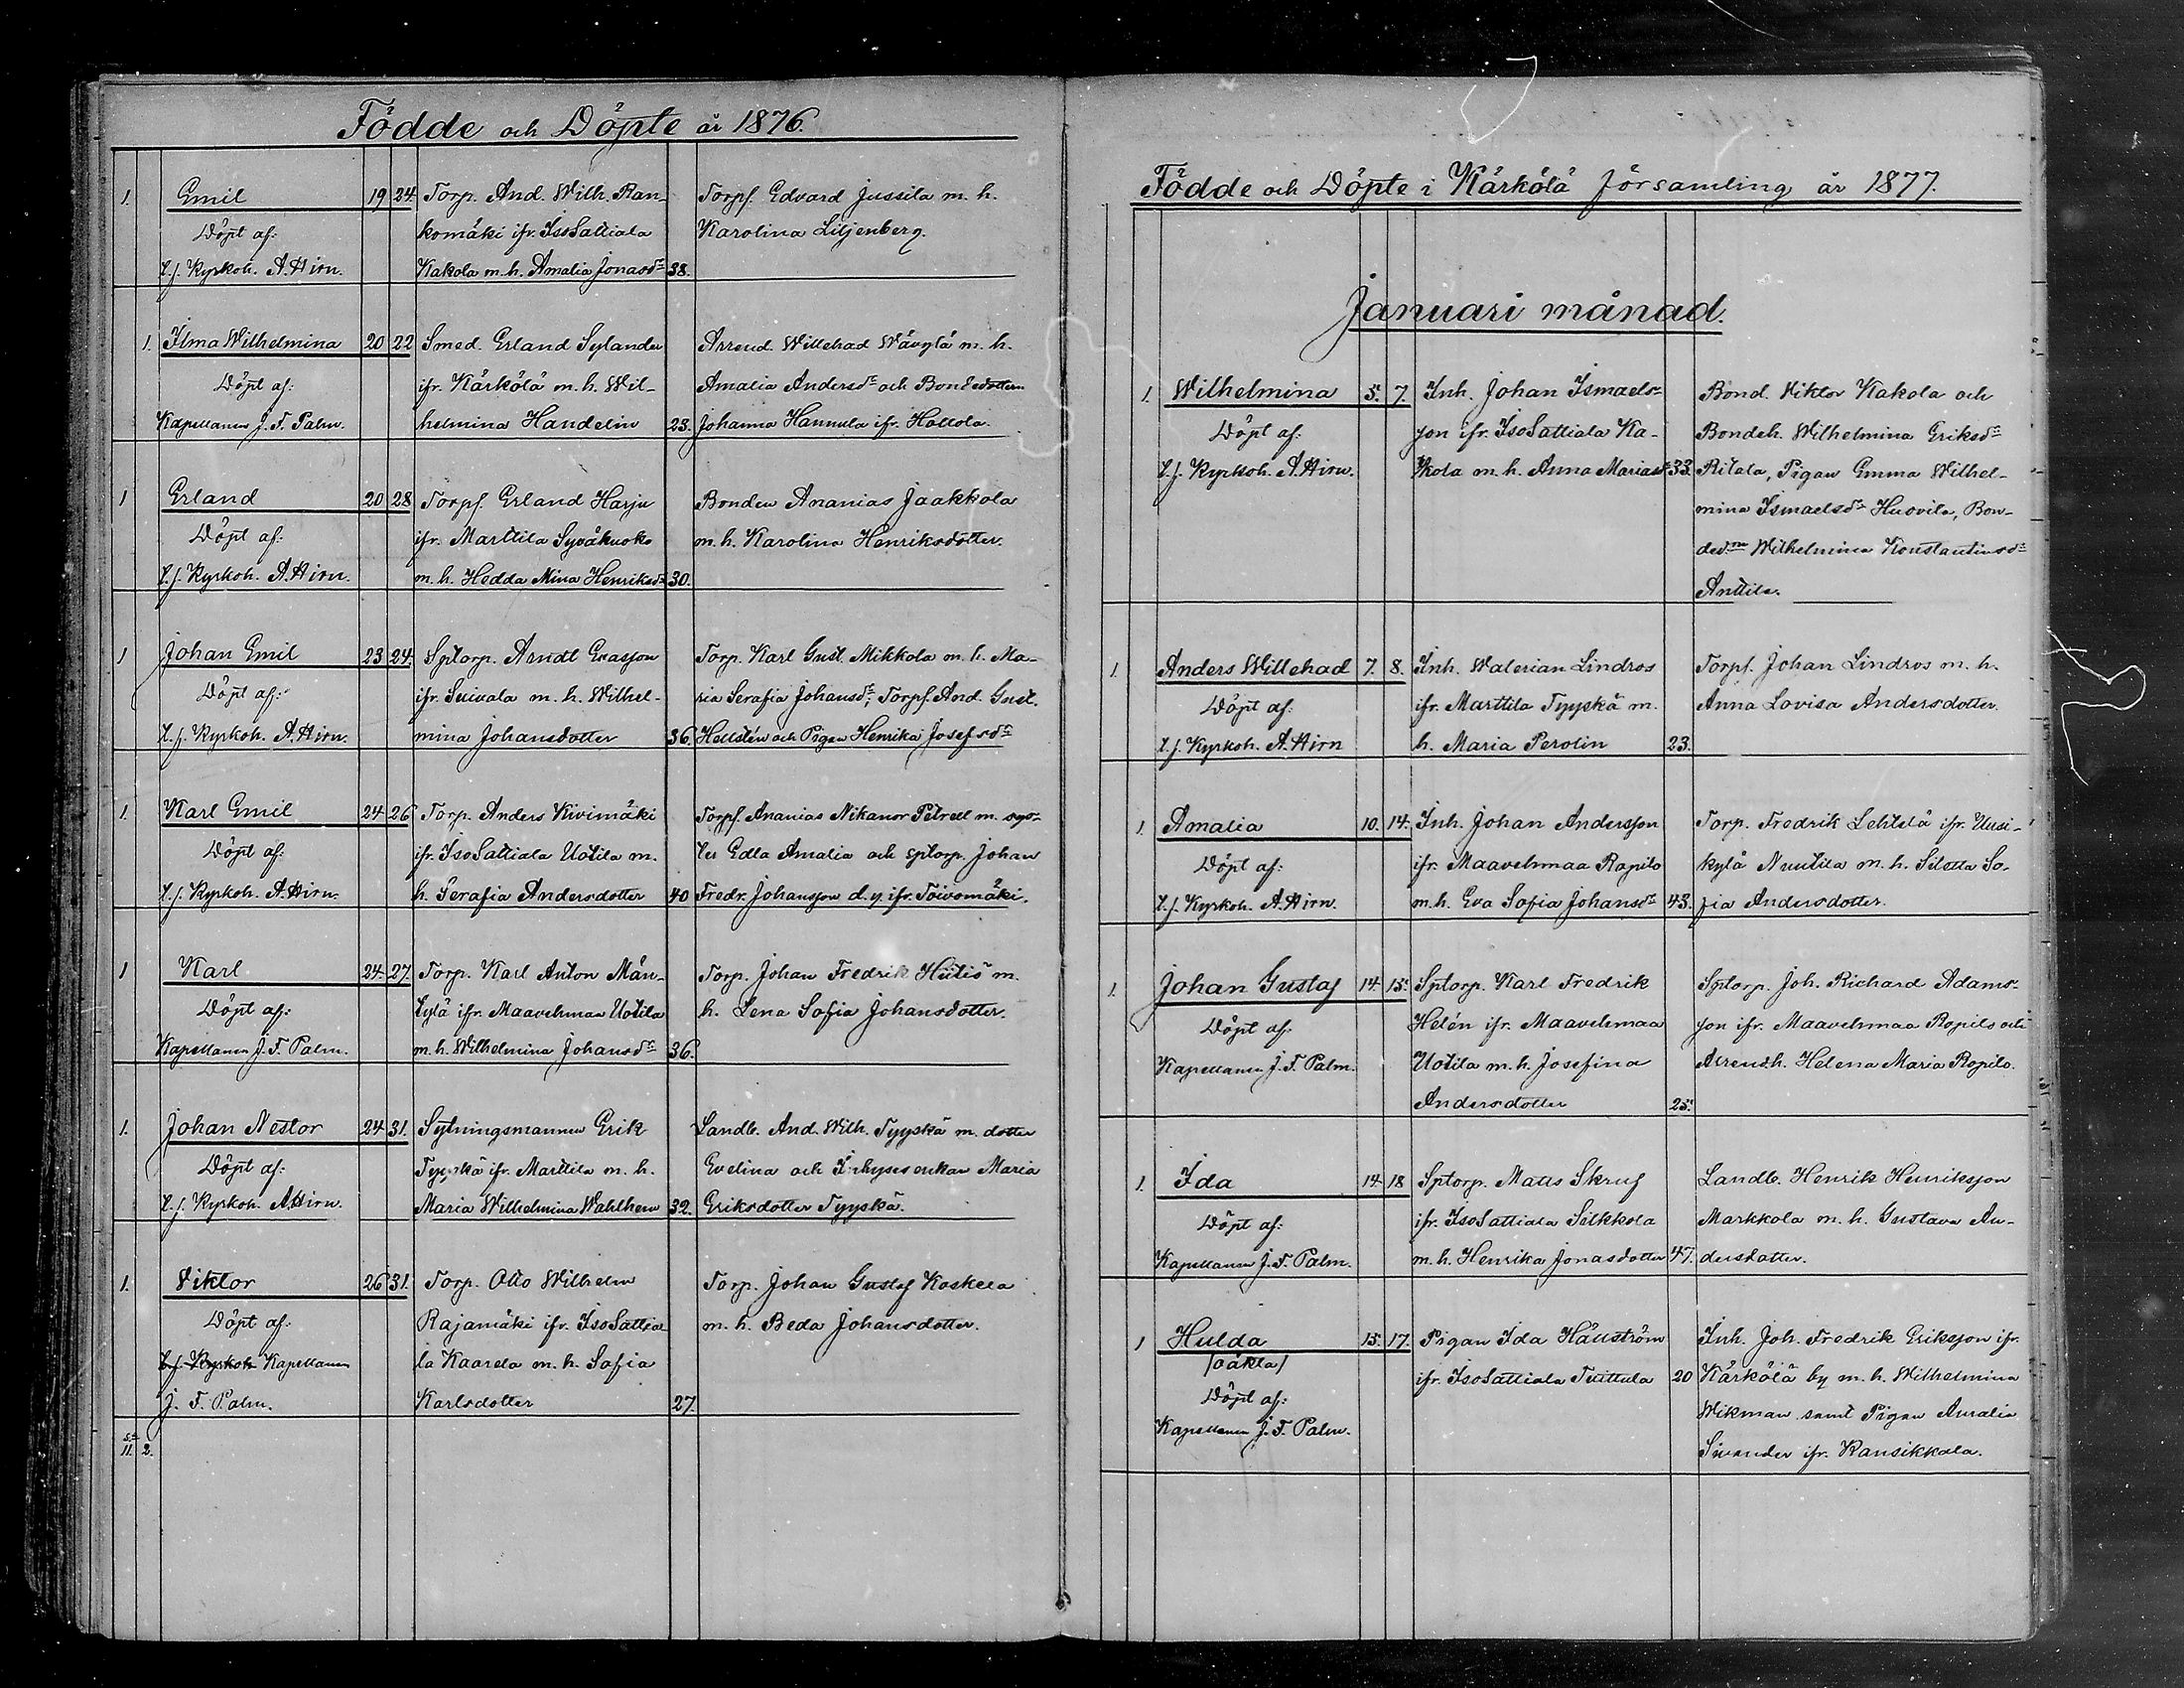 Födde och Döpte år 1876.
1. Emil 19 24. Torp. And. Wilh. Ran- Torpf. Edvard Jussila m. h.
Döpt af: komäki ifr. IsoSattiala Karolina Liljenberg.
t.f. Kyrkoh. A. Hirn. Kakola m. h. Amalia Jonasdr 38.
1. Ilma Wilhelmina 20 22 Smed. Erland Sylander Arrend. Willehad Wävylä m. h.
Döpt af: ifr. Kärkölä m. h. Wil- Amalia Andersdr och Bondedottern
Kapellanen J. F. Palm. helmina Handelin 23. Johanna Hannula ifr. Hollola.
1 Erland 20 28 Torpf. Erland Harju Bonden Ananias Jaakkola
Döpt af: ifr. Marttila Syväkuoko m. h. Karolina Henriksdotter.
t.f. Kyrkoh. A. Hirn. m. h. Hedda Mina Henriksdr 30.
1 Johan Emil 23 24. Sptorp. Arndt Evasson Torp. Karl Gust. Mikkola m. h. Ma-
Döpt af: ifr. Suivala m. h. Wilhel- ria Serafia Johansdr; Torpf. And. Gust.
t.f. Kyrkoh. A. Hirn. mina Johansdotter 36. Hellstén och Pigan Henrika Josefsdr
1. Karl Emil 24 26 Torp. Anders Kivimäki Torpf. Ananias Nikanor Petrell m. sys-
Döpt af: ifr. IsoSattiala Uotila m. ter Edla Amalia och sptorp. Johan
t.f. Kyrkoh. A. Hirn. h. Serafia Andersdotter 40 Fredr. Johansson d. y. ifr. Toivomäki.
1 Karl 24. 27. Torp. Karl Anton Män- Torp. Johan Fredrik Hiitiö m.
Döpt af: tylä ifr. Maavehmaa Uotila h. Lena Sofia Johansdotter.
Kapellanen J. F. Palm. m. h. Wilhelmina Johansdr 36.
1. Johan Nestor 24 31. Sytningsmannen Erik Landb. And. Wilh. Tyyskä m. dotter
Döpt af: Tyyskä ifr. Marttila m. h. Evelina och Inhysesenkan Maria
t.f. Kyrkoh. A. Hirn. Maria Wilhelmina Wahlhem 32. Eriksdotter Tyyskä.
1. Viktor 26 31. Torp. Otto Wilhelm Torp. Johan Gustaf Koskela
Döpt af: Rajamäki ifr. IsoSattia- m. h. Beda Johansdotter.
t.f. Kyrkoh. Kapellanen la Kaarela m. h. Sofia
J. F. Palm. Karlsdotter 27.
11. 2.
Födde och Döpte i Kärkölä församling år 1877.
Januari månad.
1. Wilhelmina 5. 7. Inh. Johan Ismaels- Bond. Viktor Kakola och
Döpt af: son ifr. IsoSattiala Ka- Bondeh. Wilhelmina Eriksdr
t.f. Kyrkoh. A. Hirn. kola m. h. Anna Mariasdr 33. Ritala, Pigan Emma Wilhel-
mina Ismaelsdr Huovila, Bon-
ded:rn Wilhelmina Konstantinsdr
Anttila.
1. Anders Willehad 7. 8. Inh. Walerian Lindros Torpf. Johan Lindros m. h.
Döpt af: ifr. Marttila Tyyskä m. Anna Lovisa Andersdotter.
t.f. Kyrkoh. A. Hirn h. Maria Perolin 23.
1. Amalia 10. 14. Inh. Johan Andersson Torp. Fredrik Lehtelä ifr. Uusi-
Döpt af: ifr. Maavehmaa Ropilo kylä Nuutila m. h. Silotta So-
t.f. Kyrkoh. A. Hirn. m. h. Eva Sofia Johansdr 43. fia Andersdotter.
1. Johan Gustaf 14. 15. Sptorp. Karl Fredrik Sptorp. Joh. Richard Adams-
Döpt af: Helén ifr. Maavehmaa son ifr. Maavehmaa Ropilo och
Kapellanen J. F. Palm. Uotila m. h. Josefina Arrend.h. Helena Maria Ropilo.
Andersdotter 25.
1. Ida 14. 18 Sptorp. Matts Skruf Landb. Henrik Henriksson
Döpt af: ifr. IsoSattiala Silkkola Markkola m. h. Gustava An-
Kapellanen J. F. Palm. m. h. Henrika Jonasdotter 47. dersdotter.
1 Hulda 15. 17. Pigan Ida Hällström Inh. Joh. Fredrik Eriksson ifr.
/oäkta/ ifr. IsoSattiala Tuittula 20 Kärkölä by m. h. Wilhelmina
Döpt af: Wikman samt Pigan Amalia
Kapellanen J. F. Palm. Sivander ifr. Kansikkala.